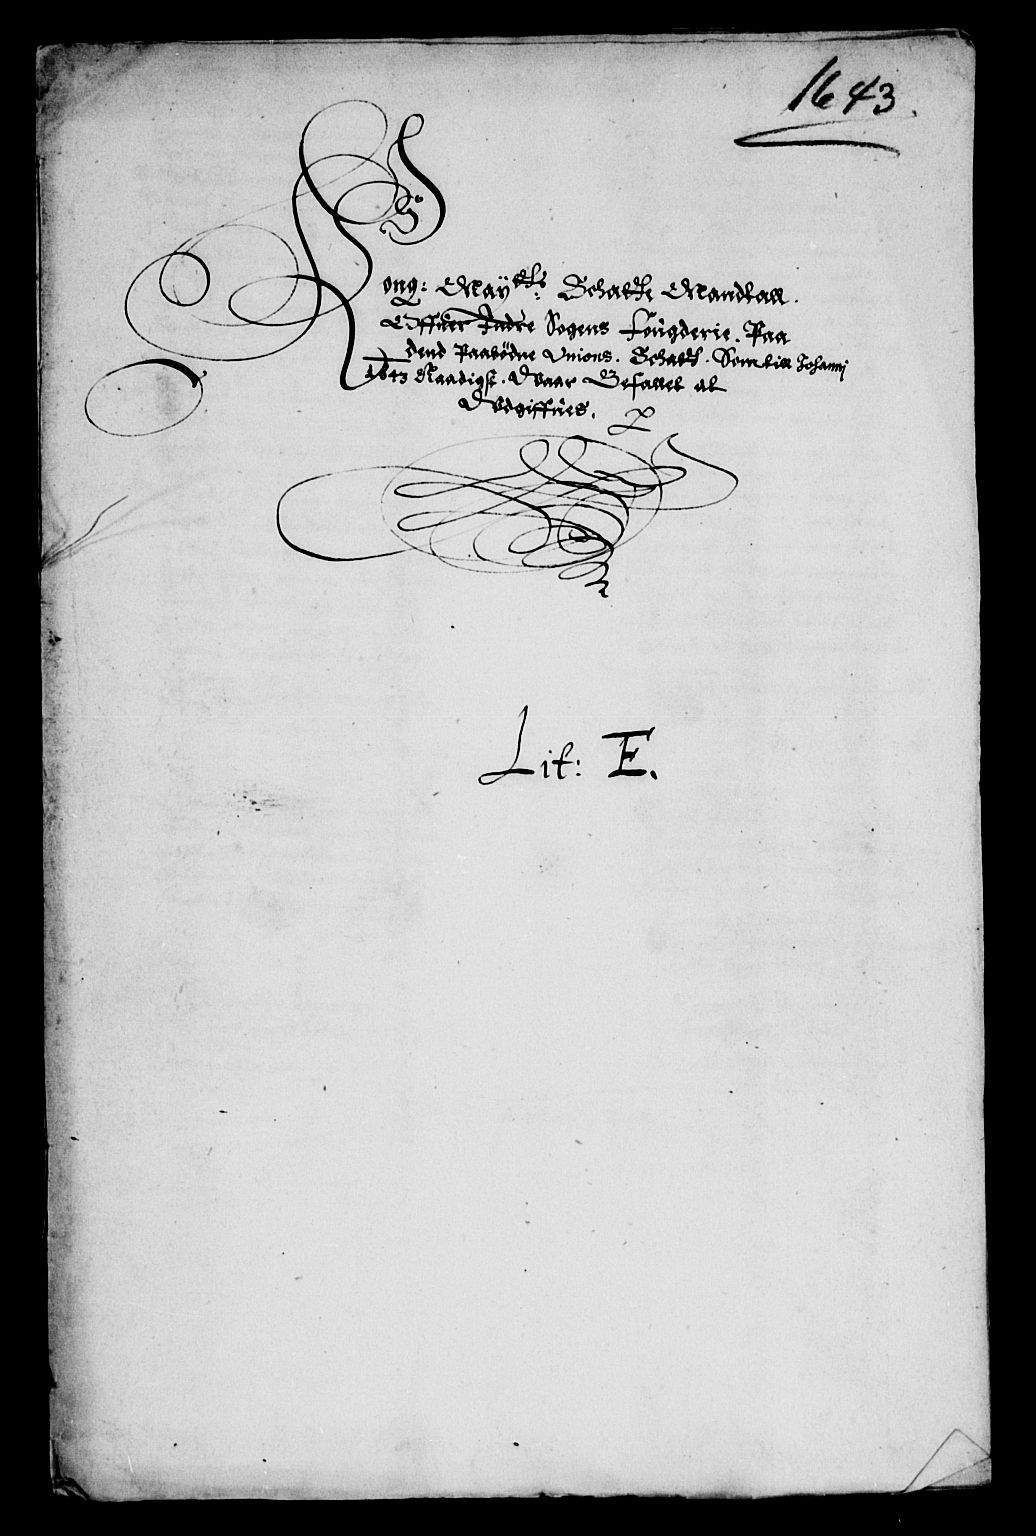 1643.
Kong: Maÿtts: Schatte Mandtall.
Offuer Indre Sogens Fougderie. Paa
dend Paabødne Unions. Schatt. Som till Johannj
1643 Naadigst. Vaar Befallet at
Vdgiffues.
Lit: E.